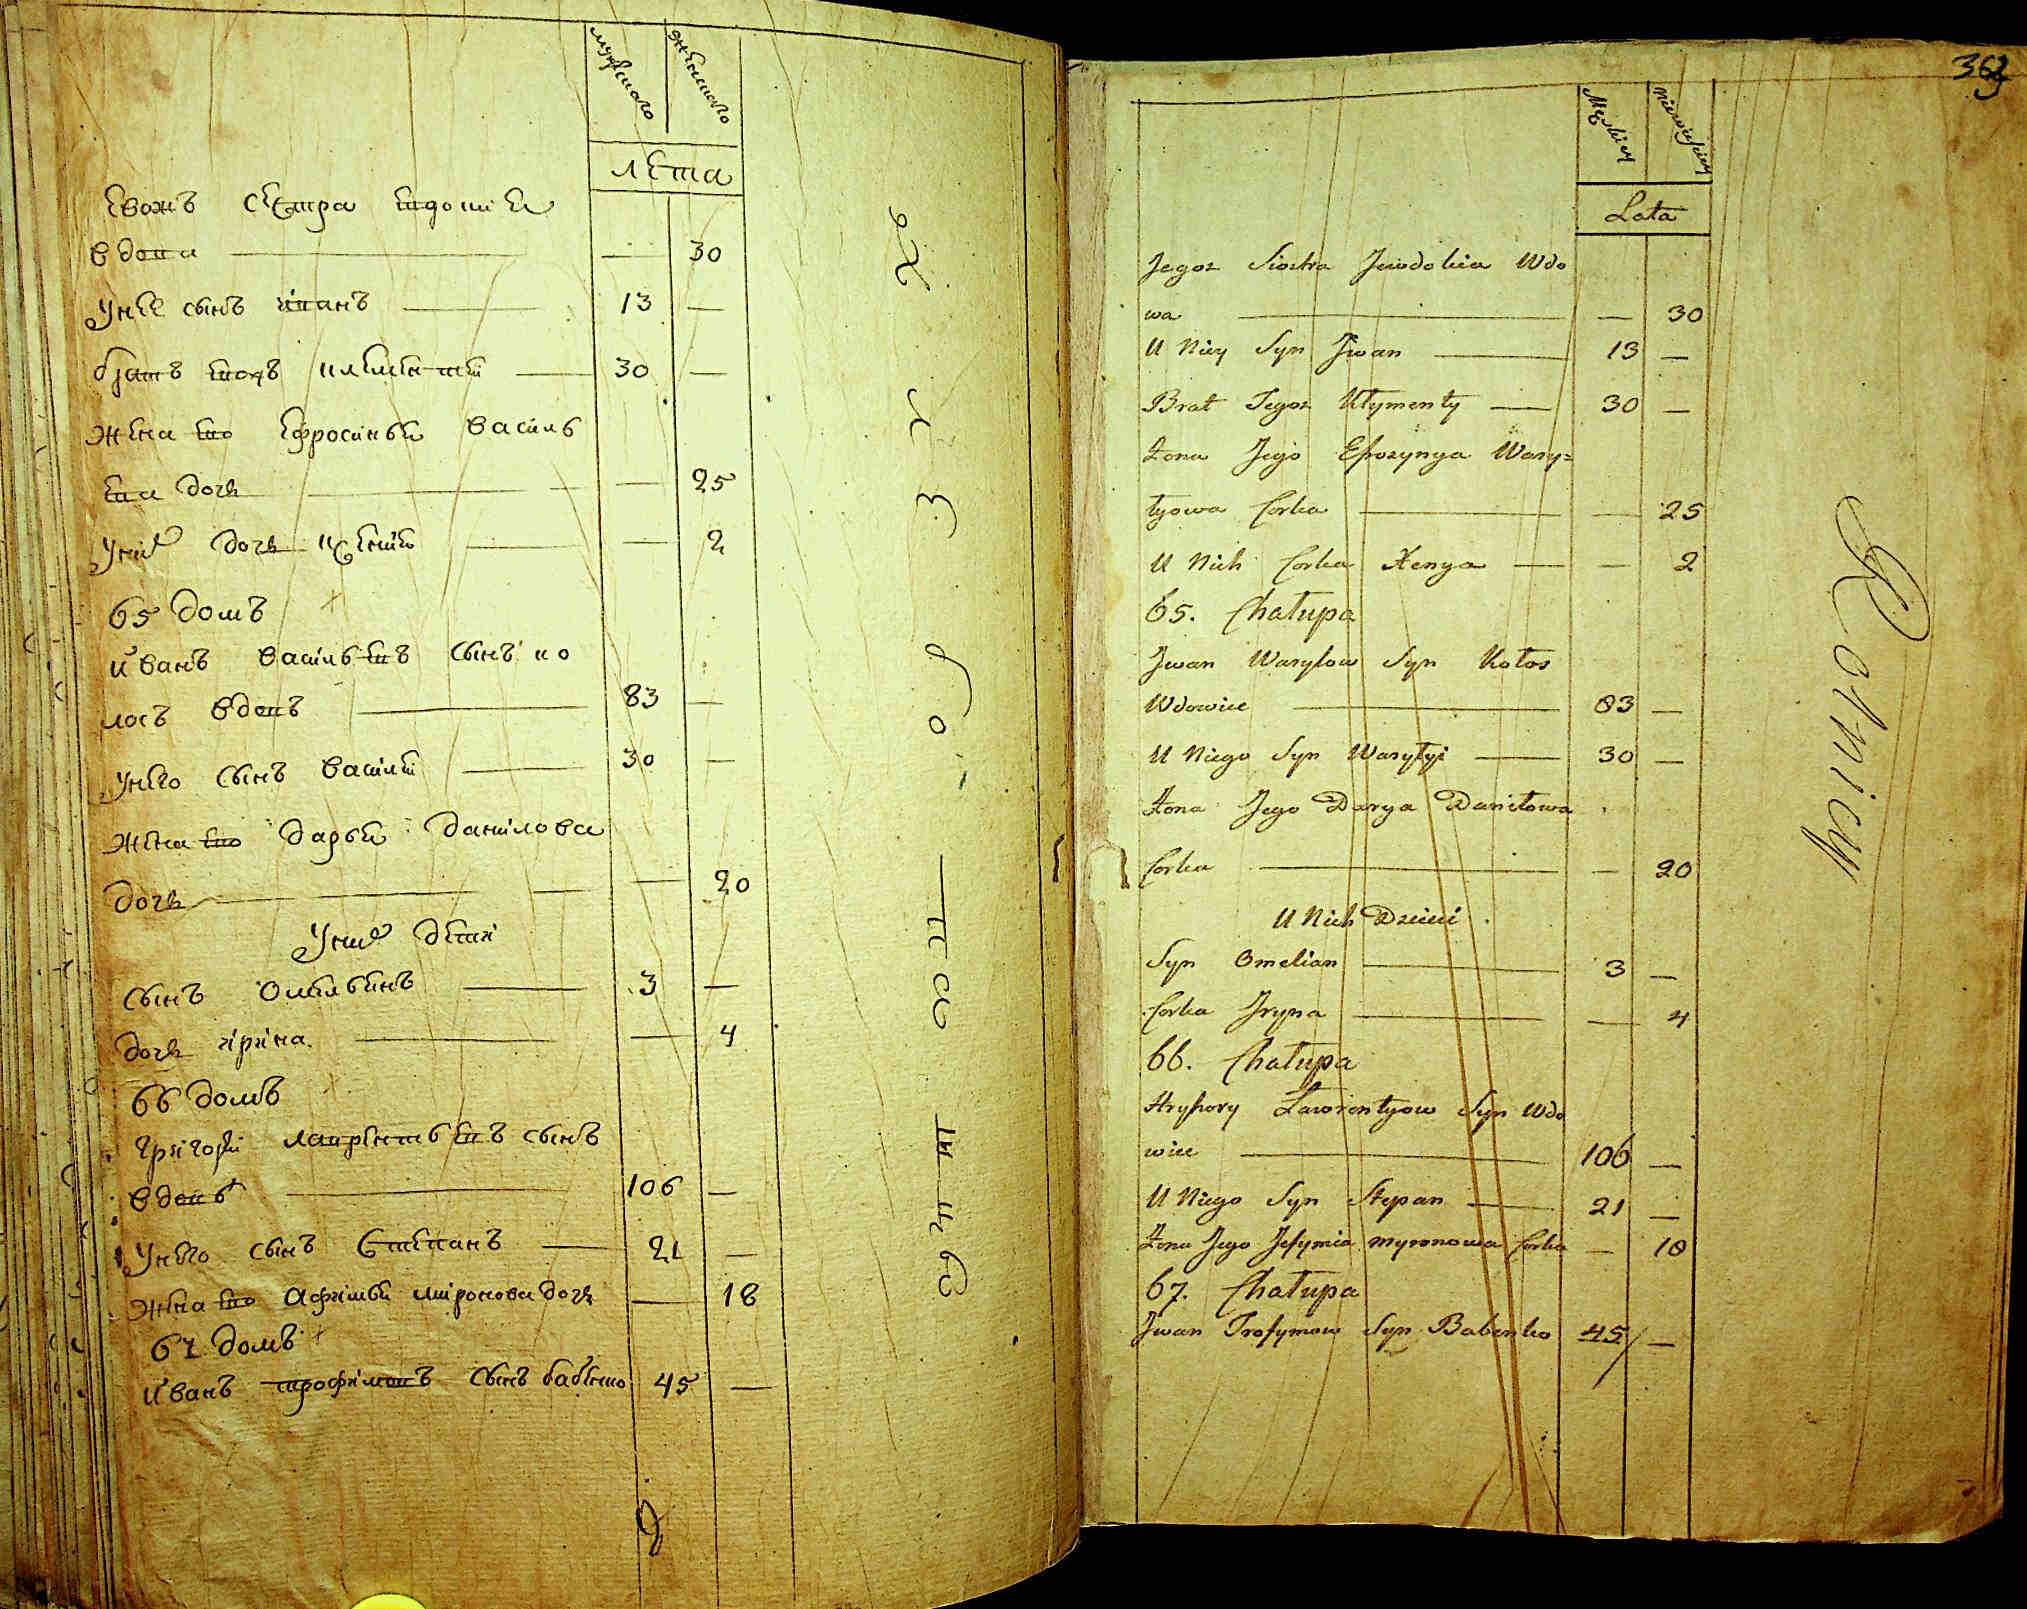 мужеска женска
лета
Евожъ сестра евдокиея
вдова — 30
Унее сынъ іванъ 13 —
братъ евожъ климентей 30 —
жена ево ефросинья василь
ева дочь — 25
Уних дочь ксения — 2
65 домъ
иванъ васильевъ сынъ ко
лосъ вдовъ 83 —
Унего сынъ василей 30 —
жена ево дарья данилова
дочь — 20
Уних дети
сынъ омельянъ 3 —
дочь ірина — 4
66 домъ
григорей лаврентьевъ сынъ
вдовъ 106 —
Унего сынъ Степанъ 21 —
жена ево афимья миронова дочь — 18
67 домъ
иванъ трофимовъ сынъ бабенко 45 —
363
Męskiey Niewieskiey
Lata
Jegoż Siostra Jewdokia Wdo
wa — 30
U Niey Syn Jwan 13 —
Brat Jegoż Kłymenty 30 —
Żona Jego Efrozynya Wasy=
lyowa Corka — 25
U Nich Corka Xenya — 2
65. Chałupa
Jwan Wasylow Syn Kołos
Wdowiec 83 —
U Niego Syn Wasylyi 30 —
Żona Jego Darya Daniłowa
Corka — 20
U Nich Dzieci
Syn Omelian 3 —
Corka Jryna — 4
66. Chałupa
Hryhory Ławrentyow Syn Wdo
wiec 106 —
U Niego Syn Stepan 21 —
Żona Jego Jefymia Myronowa Corka — 18
67. Chałupa
Jwan Trofymow Syn Babenko 45 —
Rotnicy